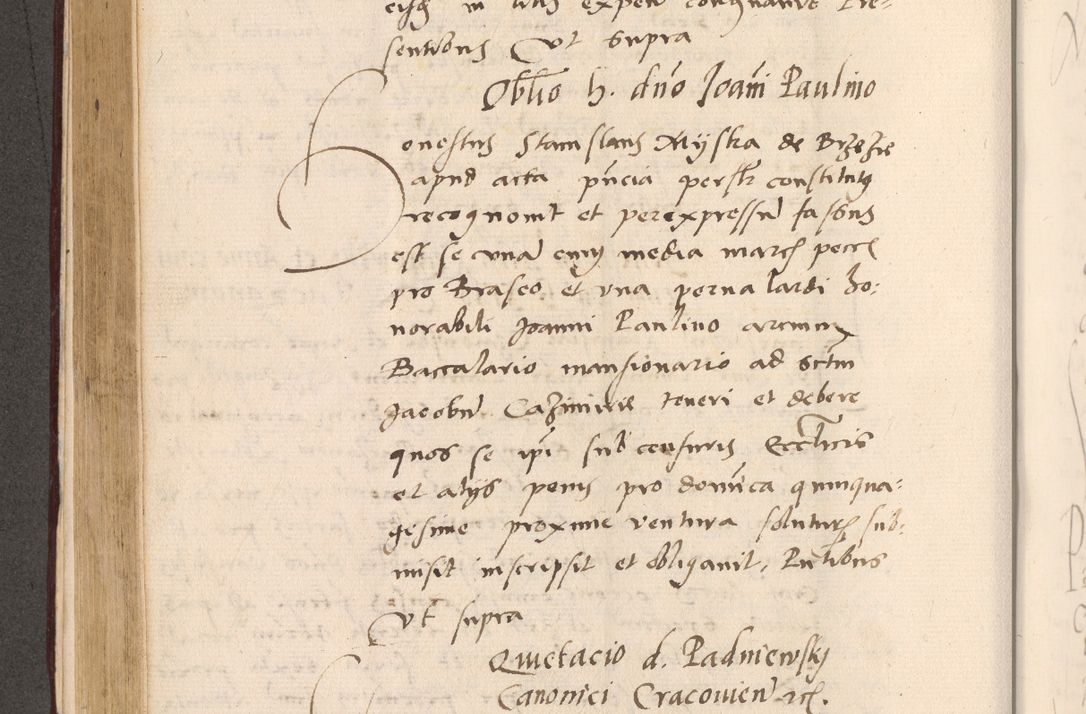 eisq in litis expen condignavit Pre-
sentibus Ut supra
Oblio h. dno Joanni Paulino
Honestus Stanislaus Myszka de Brzezie
apud acta pncia personlr constitutus
recognovit et per expressum fassus
est se unam cum media marcis pecc
pro Braseo et una perna lardi Ho-
norabili Joanni Paulino artium
Baccalario mansionario ad Sctm
Jacobum Cazimirie teneri et debere
quos se ipi sub censuris Ecclticis
et alijs penis pro domnica quinqua-
gesime proxime ventura soluturum sub-
misit inscripsit et obligavit, Pntibus
Ut supra
Quietacio d. Padniewskj
Canonici Cracovien